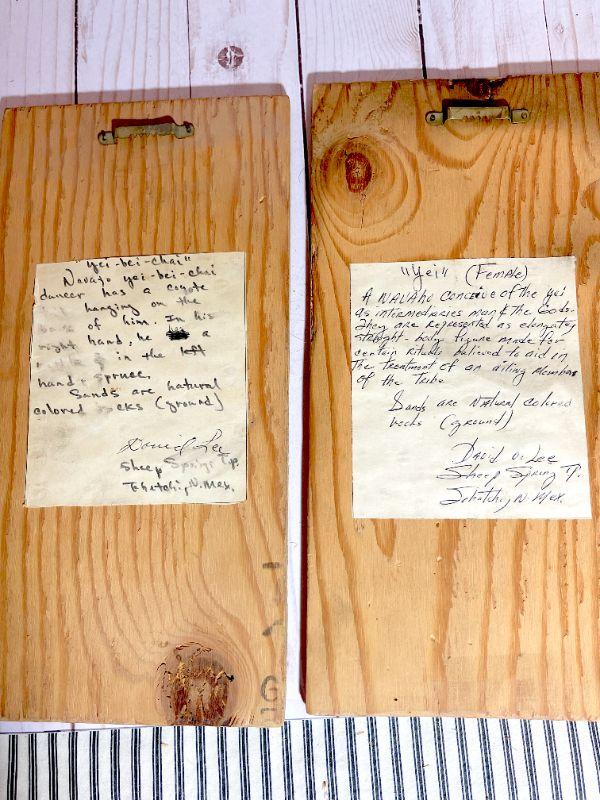 "Yei-bei-chai"
Navajo yei-bei-chai
dancer has a coyote
hanging on the
of him. In his
right hand, he a
in the left
hand spruce.
Sands are natural
colored rocks (ground)
David Lee
Sheep Springs T.p.
N. Mex.
"Yei" (Female)
A NAVAho conceive of the yei
as intermediaries man & the Gods.
They are represented as elongated,
straight-body figure made for
certain rituals believed to aid in
The treatment of an ailing members
of the tribe
Sands are Natural colored
rocks (ground)
David V. Lee
Sheep Spring T.
N. Mex.